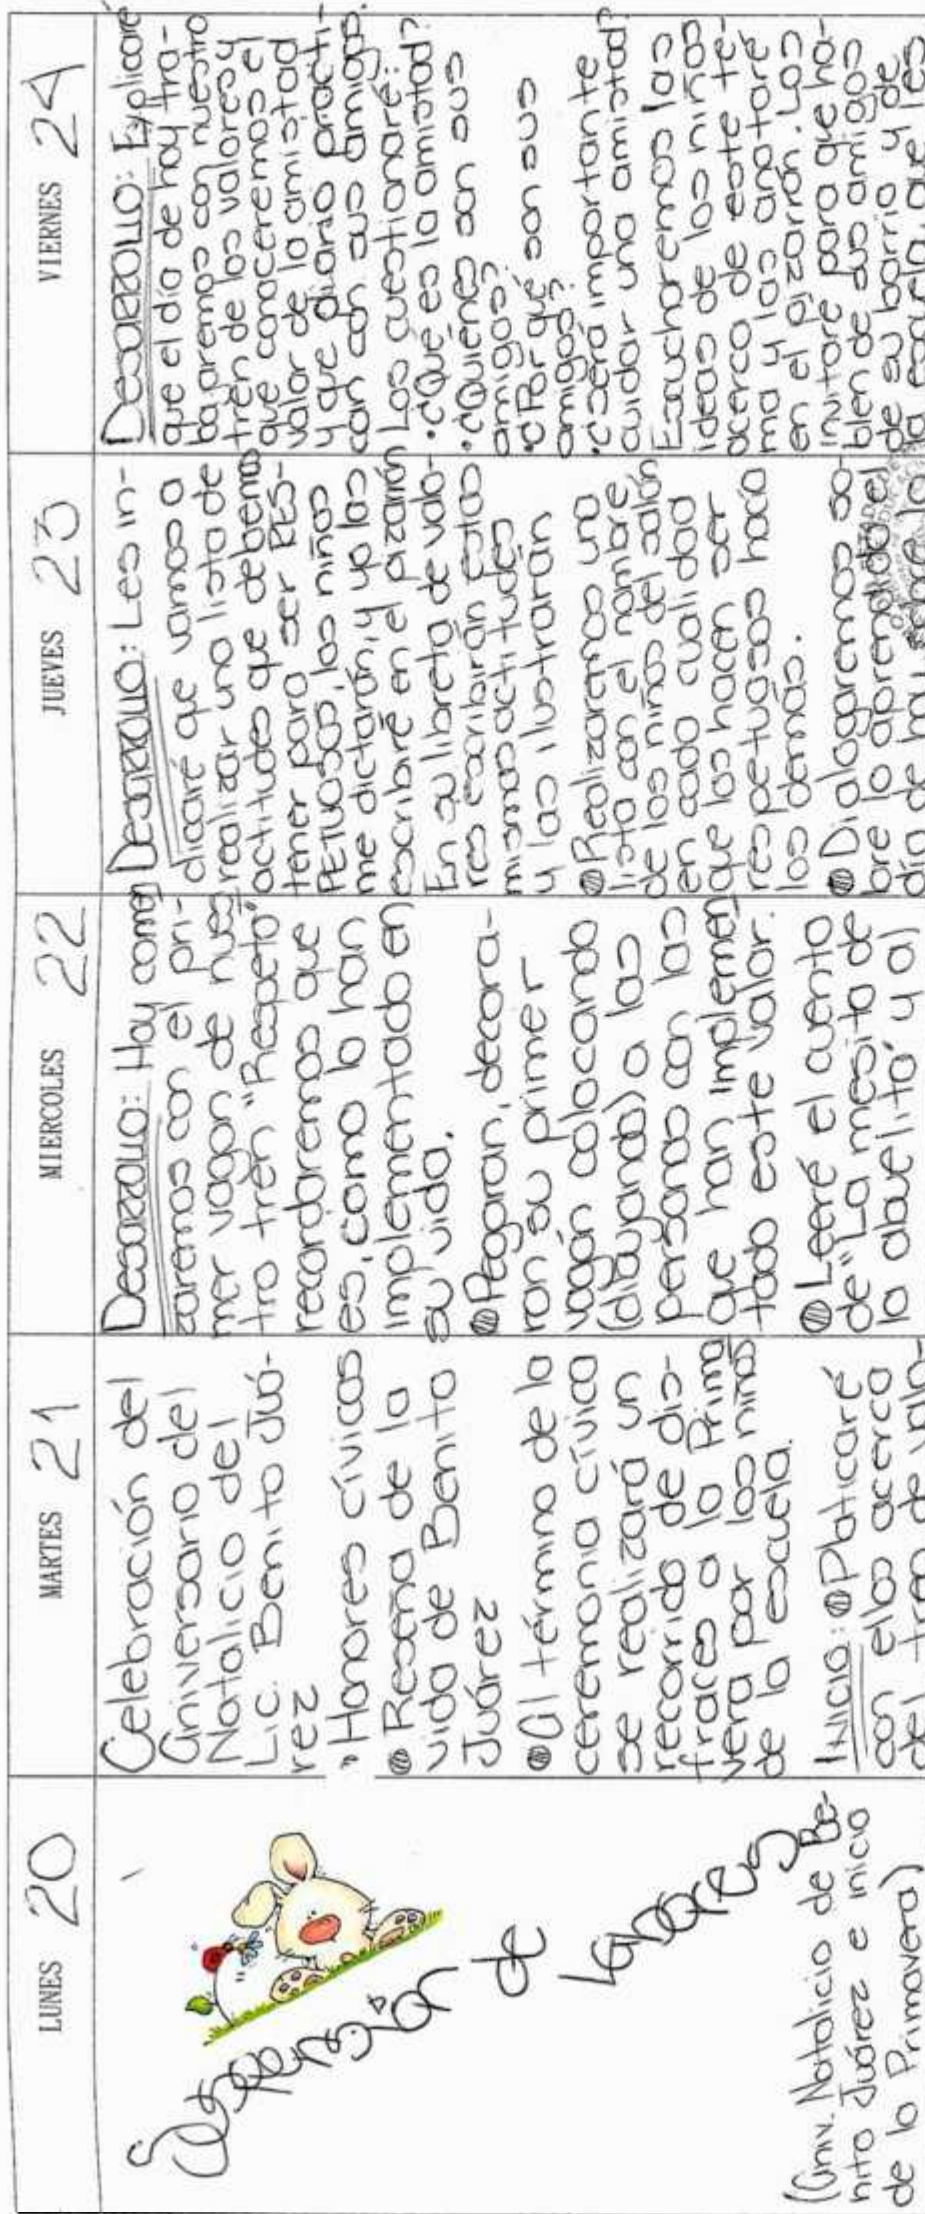 LUNES 20
Suspensión de
Labores
(Aniv. Natalicio de Be-
nito Juárez e inicio
de la Primavera)
MARTES 21
Celebración del
Aniversario del
Natalicio del
Lic. Benito Juá-
rez
• Honores cívicos
• Reseña de la
vida de Benito
Juárez
• Al término de la
ceremonia cívica
se realizará un
recorrido de dis-
fraces a la Prima
vera por los niños
de la escuela.
INICIO: • Platicaré
con ellos acerca
del tren de valo-
MIERCOLES 22
DESARROLLO: Hoy comen
zaremos con el pri-
mer vagon de nues
tro tren "Respeto"
recordaremos que
es, como lo han
implementado en
su vida.
• Pegaran, decora-
ran su primer
vagón colocando
(dibujando) a las
personas con las
que han implemen
tado este valor.
• Leeré el cuento
de "La mesita de
la abuelita" y al
JUEVES 23
DESARROLLO: Les in-
dicaré que vamos a
realizar una lista de
actitudes que debemos
tener para ser RES-
PETUOSOS, los niños
me dictarán, y yo las
escribiré en el pizarrón
En su libreta de valo-
res escribirán estas
mismas actitudes
y las ilustrarán
• Realizaremos una
lista con el nombre
de los niños del salón
en cada cualidad
que los hacen ser
respetuosos hacia
los demás.
• Dialogaremos so-
bre lo aprendido el
día de hoy sobre lo
VIERNES 24
DESARROLLO: Explicaré
que el día de hoy tra-
bajaremos con nuestro
trén de los valores y
que conoceremos el
valor de la amistad
y que diario practi-
can con sus amigos.
Los cuestionaré:
• ¿Qué es la amistad?
• ¿Quiénes son sus
amigos?
• ¿Por qué son sus
amigos?
• ¿Será importante
cuidar una amistad?
Escucharemos las
ideas de los niños
acerca de este te-
ma y las anotaré
en el pizarrón. Los
invitaré para que ha-
blen de sus amigos
de su barrio y de
la escuela, que les